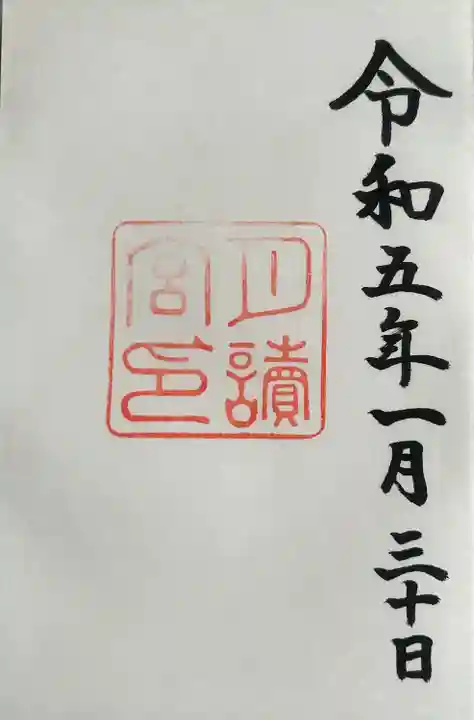 令和五年一月三十日
月讀
宮印